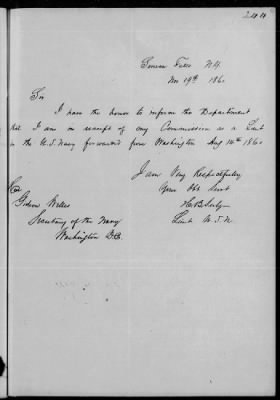 Seneca Falls N.Y.
Nov 19th 186
Sir
I have the honor to inform the Department
that I am in receipt of my Commission as a Lieut
in the U.S. Navy forwarded from Washington Aug 10th 186
I am Very Respectfully
Your Obt Servt
Lieut U.S.N
To
Gideon Welles
Secretary of the Navy
Washington D.C.